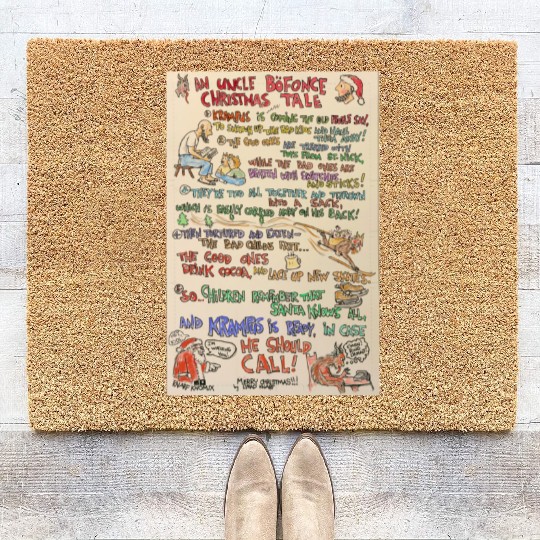 AN UNCLE BÖFONCE
CHRISTMAS TALE
KRAMPUS IS COMING THE OLD FOLKS SAY,
TO ROUND UP THE BAD KIDS AND HAUL
THEM AWAY!
THE GOOD ONES ARE TREATED WITH
TOYS FROM ST. NICK,
WHILE THE BAD ONES ARE
BEATEN WITH SWITCHES
AND STICKS!
THEY'RE TIED ALL TOGETHER AND THROWN
INTO A SACK,
WHICH IS EASILY CARRIED AWAY ON HIS BACK!
THEN TORTURED AND EATEN—
THE BAD CHILDS FATE...
THE GOOD ONES
DRINK COCOA, AND LACE UP NEW SKATES.
SO.. CHILDREN REMEMBER THAT
SANTA KNOWS ALL,
AND KRAMPUS IS READY, IN CASE
HE SHOULD
CALL!
MERRY CHRISTMAS!!!